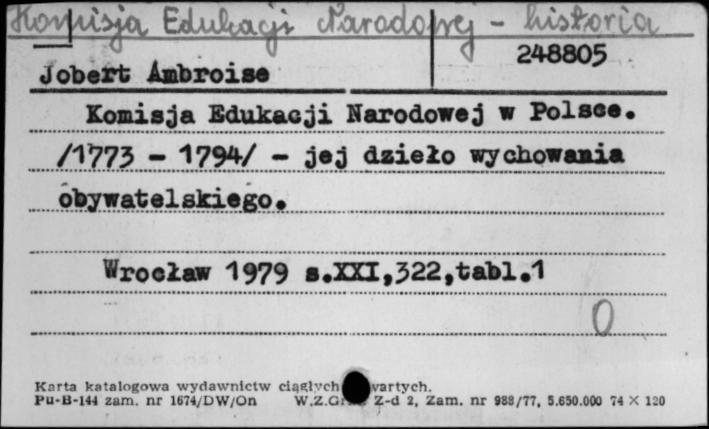 Komisja Edukacji Narodowej - historia
248805
Jobert Ambroise
Komisja Edukacji Narodowej w Polsce.
/1773 - 1794/ - jej dzieło wychowania
obywatelskiego.
Wrocław 1979 s.XXI,322,tabl.1
0
Karta katalogowa wydawnictw ciągłych
Pu-B-144 zam. nr 1674/DW/On W.Z.Graf Z-d 2, Zam. nr 988/77, 5.650.000 74 X 120